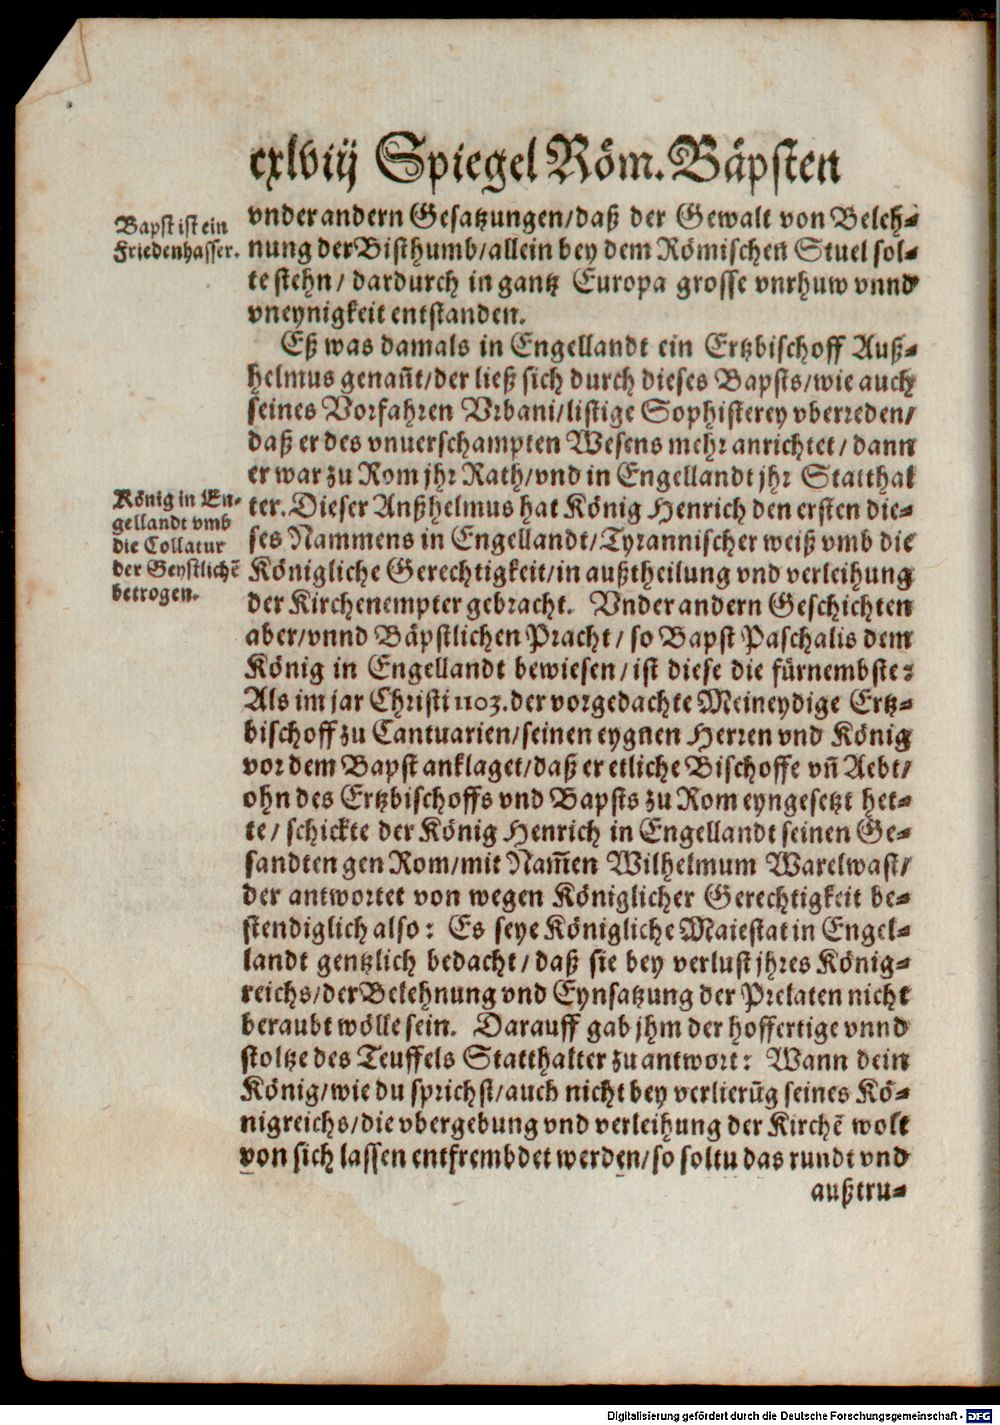 cxlviij Spiegel Röm. Bäpsten
Bapst ist ein
Friedenhasser.
vnder andern Gesatzungen/daß der Gewalt von Beleh⸗
nung der Bisthumb/allein bey dem Römischen Stuel sol⸗
te stehn/ dardurch in gantz Europa grosse vnrhuw vnnd
vneynigkeit entstanden.
Eß was damals in Engellandt ein Ertzbischoff Auß⸗
helmus genañt/der ließ sich durch dieses Bapsts/wie auch
seines Vorfahren Vrbani/listige Sophisterey vberreden/
daß er des vnuerschampten Wesens mehr anrichtet/ dann
er war zu Rom jhr Rath/vnd in Engellandt jhr Statthal
König in En⸗
gellandt vmb
die Collatur
der Geystlichẽ
betrogen.
ter. Dieser Anßhelmus hat König Henrich den ersten die⸗
ses Nammens in Engellandt/Tyrannischer weiß vmb die
Königliche Gerechtigkeit/in außtheilung vnd verleihung
der Kirchenempter gebracht. Vnder andern Geschichten
aber/vnnd Bäpstlichen Pracht/ so Bapst Paschalis dem
König in Engellandt bewiesen/ist diese die fürnembste:
Als im jar Christi 1103. der vorgedachte Meineydige Ertz⸗
bischoff zu Cantuarien/seinen eygnen Herren vnd König
vor dem Bapst anklaget/daß er etliche Bischoffe vñ Aebt/
ohn des Ertzbischoffs vnd Bapsts zu Rom eyngesetzt het⸗
te/ schickte der König Henrich in Engellandt seinen Ge⸗
sandten gen Rom/mit Nam̃en Wilhelmum Warelwast/
der antwortet von wegen Königlicher Gerechtigkeit be⸗
stendiglich also: Es seye Königliche Maiestat in Engel⸗
landt gentzlich bedacht/ daß sie bey verlust jhres König⸗
reichs/der Belehnung vnd Eynsatzung der Prelaten nicht
beraubt wölle sein. Darauff gab jhm der hoffertige vnnd
stoltze des Teuffels Statthalter zu antwort: Wann dein
König/wie du sprichst/auch nicht bey verlierũg seines Kö⸗
nigreichs/die vbergebung vnd verleihung der Kirchẽ wolt
von sich lassen entfrembdet werden/so soltu das rundt vnd
außtru⸗
Digitalisierung gefördert durch die Deutsche Forschungsgemeinschaft - DFG